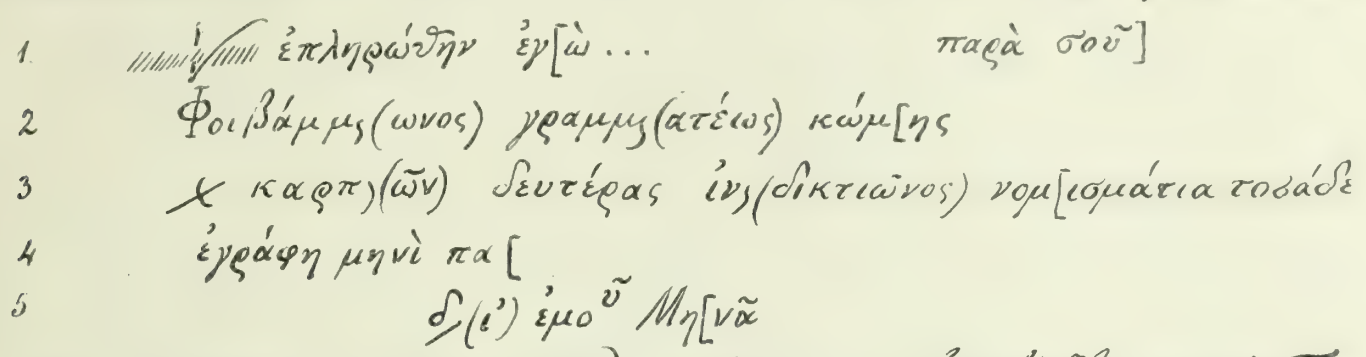 1. ἐπληρώθην ἐγ[ὼ ... παρὰ σοῦ]
2 Φοιβάμμ(ωνος) γραμμ(ατέως) κώμ[ης
3 χ καρπ(ῶν) δευτέρας ἰν(δικτιῶνος) νομ[ισμάτια τοσάδε
4 ἐγράφη μηνὶ πα[
5 δ(ι') ἐμοῦ Μη[νᾶ